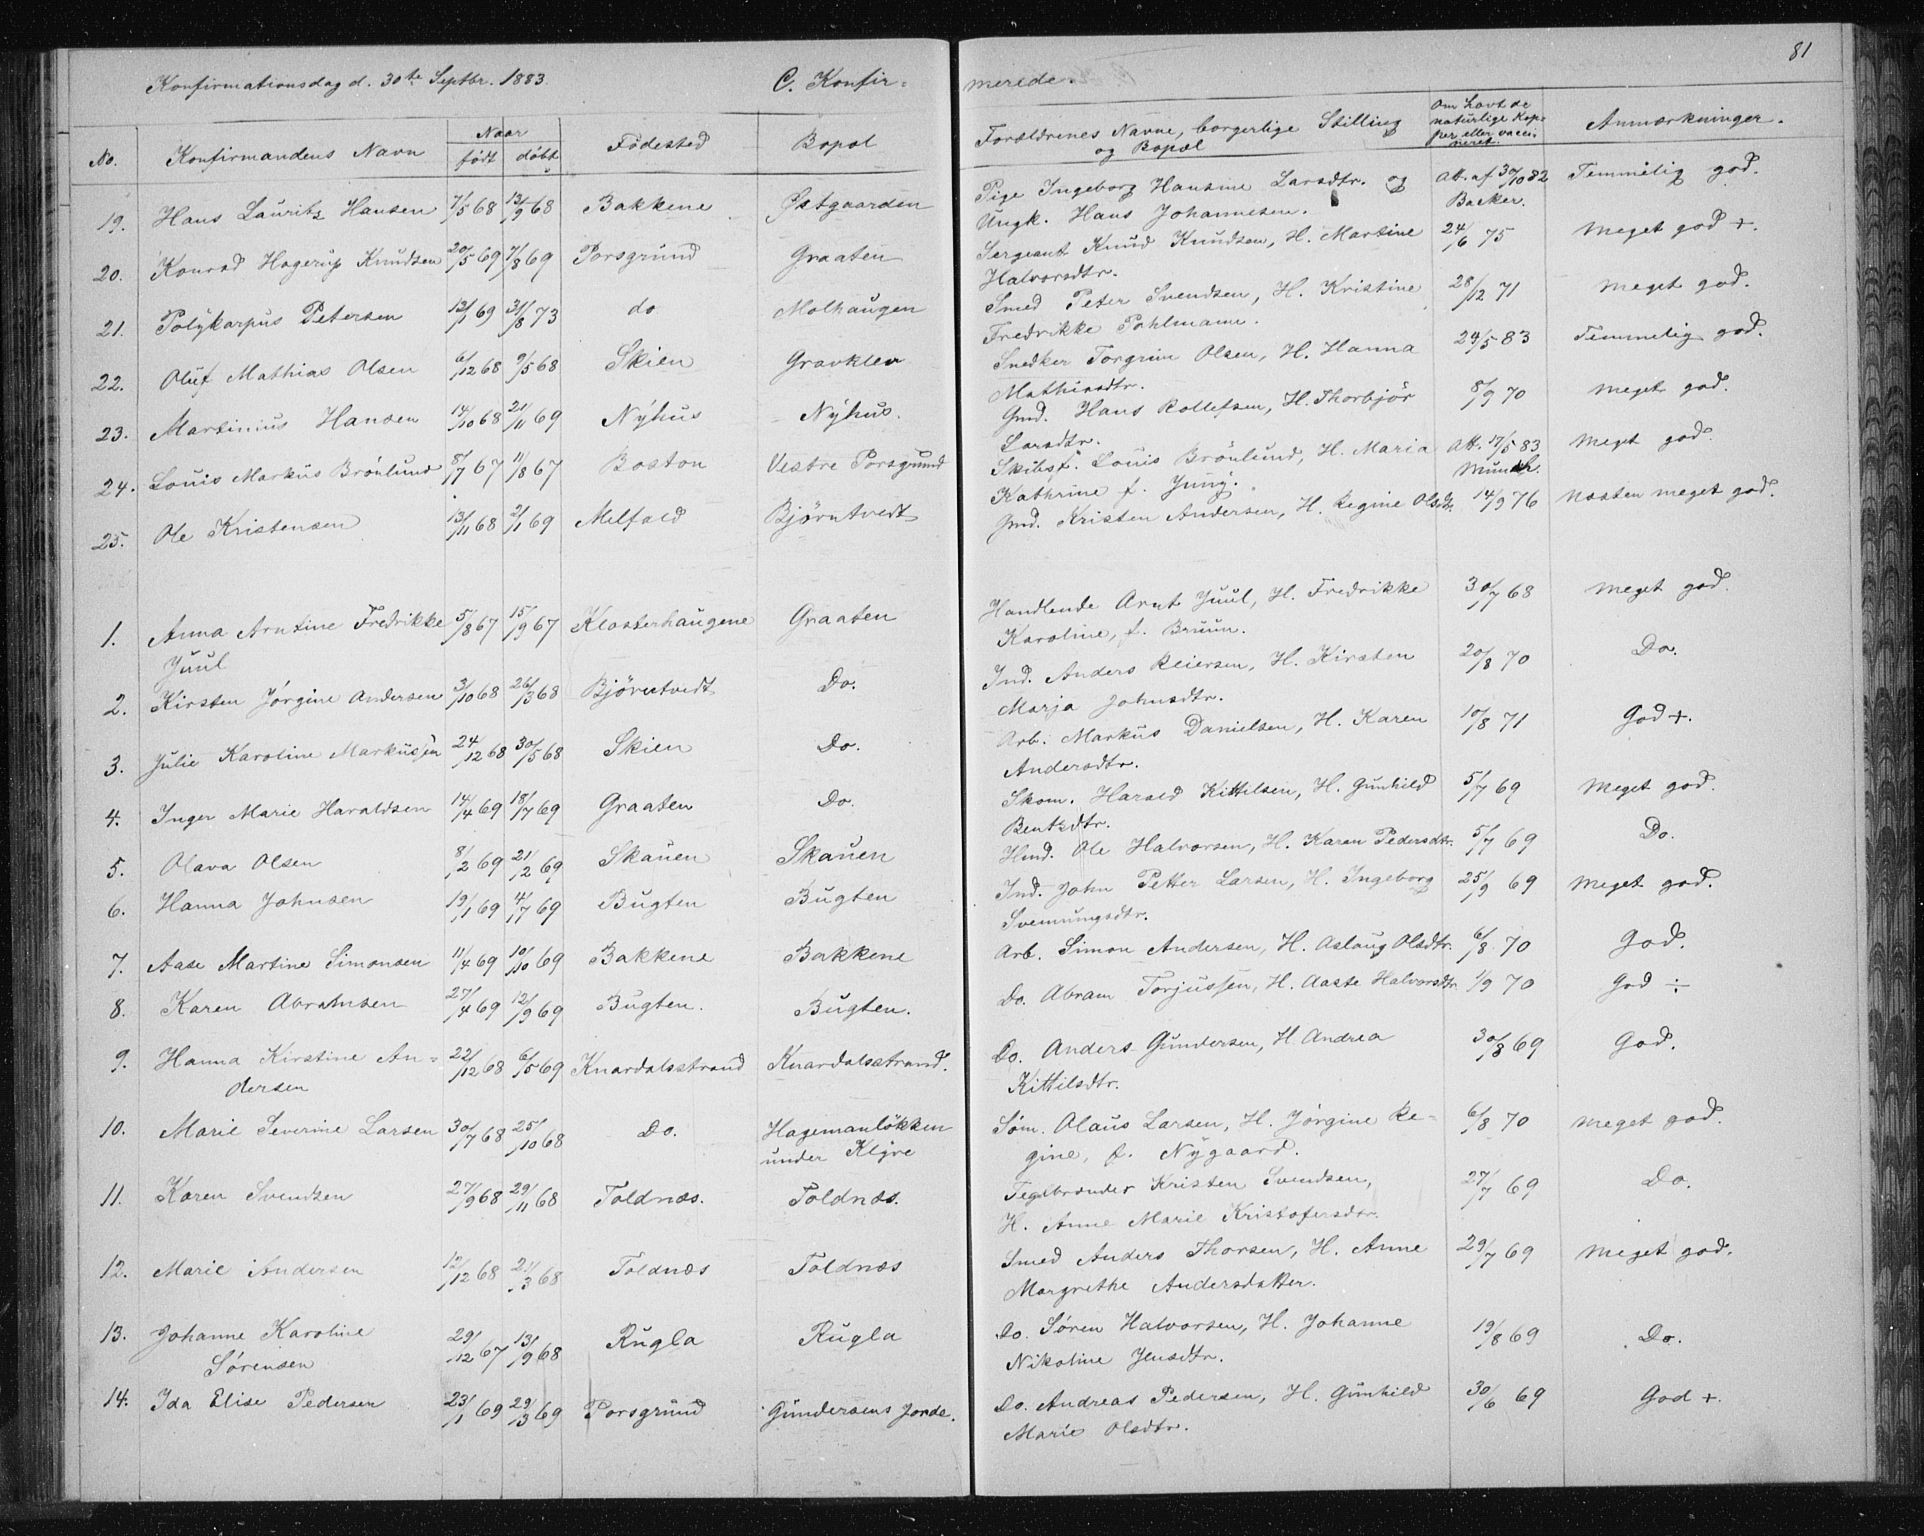 81
Konfirmationsdag d. 30te Septbr. 1883. C. Konfir- merede.
No. Konfirmandens Navn Naar født døbt Födested Bopæl Forældrenes Navne, borgerlige Stilling og Bopæl Om havt de naturlige Kopper eller vaccineret. Anmærkninger.
19. Hans Lauritz Hansen 7/5 68 13/9 68 Bakkene Østgaarden Pige Ingeborg Hansine Larsdtr. og Att. af 30/10 82 Temmelig god.
Ungk. Hans Johannesen. Backer.
20. Konrad Hagerup Knudsen 20/5 69 7/8 69 Porsgrund Graaten Sergeant Knud Knudsen, H. Martine 24/6 75 Meget god +.
Halvorsdtr.
21. Polykarpus Petersen 13/1 69 31/8 73 do Molhaugen Smed Peter Svendsen, H. Kristine 28/12 71 Meget god.
Fredrikke Pohlmann.
22. Oluf Mathias Olsen 6/12 68 9/5 68 Skien Gravklev Snedker Torgrim Olsen, H. Hanna 24/5 83 Temmelig god.
Mathisdtr.
23. Martinius Hansen 14/10 68 21/11 69 Nyhus Nyhus. Gmd. Hans Rollefsen, H. Thorbjör 8/9 70 Meget god.
Larsdtr.
24. Louis Markus Brönlund 8/7 67 11/8 67 Boston Vestre Porsgrund Skibsf. Louis Brönlund, H. Maria Att. 17/5 83 Meget god.
Kathrine f. Jung. Munch.
25. Ole Kristensen 13/11 68 2/1 69 Melfald Björntvedt Gmd. Kristen Andersen, H. Regine Olsdtr. 14/9 76 Næsten meget god.
1. Anna Arntine Fredrikke 5/8 67 15/9 67 Klosterhaugene Graaten Handlende Arnt Juul, H. Fredrikke 30/7 68 Meget god
Juul Karoline, f. Bruun.
2. Kirsten Jørgine Andersen 3/10 68 26/3 68 Bjørntvedt Do. Ind. Anders Reiersen, H. Kirsten 20/8 70 Do.
Marja Johnsdtr.
3. Julie Karoline Markussen 24/12 68 30/5 68 Skien Do. Arb. Markus Danielsen, H. Karen 10/8 71 God +.
Andersdtr.
4. Inger Marie Haraldsen 14/4 69 18/7 69 Graaten Do. Skom. Harald Kittilsen, H. Gunhild 5/7 69 Meget god.
Bentsdtr.
5. Olava Olsen 8/2 69 21/2 69 Skauen Skauen Hmd. Ole Halvorsen, H. Karen Pedersdtr. 5/7 69 Do.
6. Hanna Johnsen 19/1 69 4/7 69 Bugten Bugten Ind. John Petter Larsen, H. Ingeborg 25/9 69 Meget god.
Svenungsdtr.
7. Aase Martine Simonsen 11/4 69 10/10 69 Bakkene Bakkene Arb. Simon Andersen, H. Aslaug Olsdtr. 6/8 70 God.
8. Karen Abramsen 27/4 69 12/9 69 Bugten. Bugten. Do. Abram Torjussen, H. Aaste Halvorsdtr. 1/9 70 God ÷
9. Hanna Kirstine An- 22/12 68 6/5 69 Knardalsstrand Knardalsstrand. Do. Anders Gundersen, H. Andrea 30/8 69 God.
dersen Kittilsdtr.
10. Marie Severine Larsen 30/7 68 25/10 68 Do. Hagemanløkken Søm. Olaus Larsen, H. Jørgine Re- 6/8 70 Meget god.
under Klyve gine, f. Nygaard.
11. Karen Svendsen 27/9 68 29/11 68 Toldnæs. Toldnæs. Teglbrænder Kristen Svendsen, 27/7 69 Do.
H. Anne Marie Kristofersdtr.
12. Marie Andersen 12/12 68 21/3 68 Toldnæs Toldnæs Smed Anders Thorsen, H. Anne 29/7 69 Meget god.
Margrethe Andersdatter.
13. Johanne Karoline 29/12 67 13/9 68 Rugla Rugla Do. Søren Halvorsen, H. Johanne 19/8 69 Do.
Sørensen Nikoline Jensdtr.
14. Ida Elise Pedersen 23/1 69 29/3 69 Porsgrund Gundersens Jorde. Do. Andreas Pedersen, H. Gunhild 30/6 69 God +.
Marie Olsdtr.